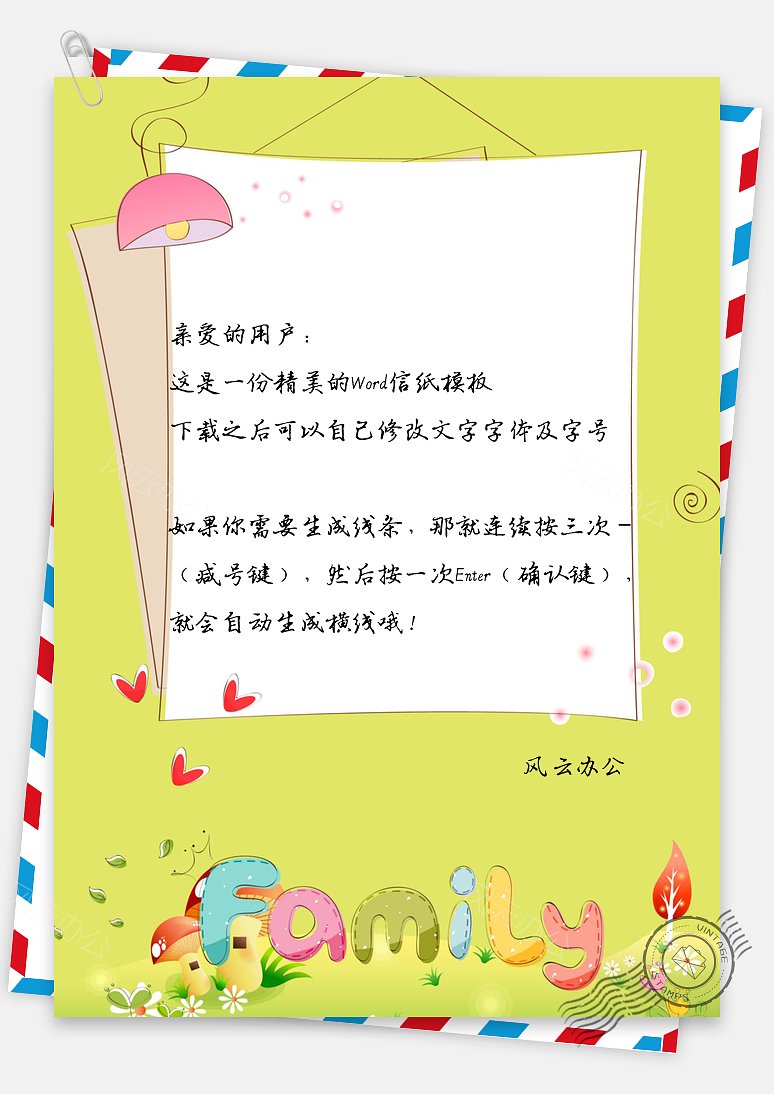 亲爱的用户：
这是一份精美的Word信纸模板
下载之后可以自己修改文字字体及字号
如果你需要生成线条，那就连续按三次-
（减号键），然后按一次Enter（确认键），
就会自动生成横线哦！
风云办公
Family
VINTAGE
STAMPS
风云办公
风云办公
风云办公
风云办公